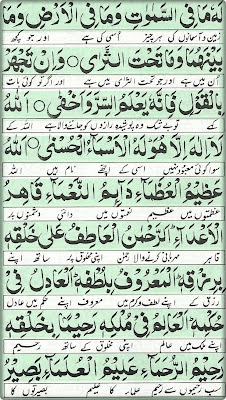 لَهُ مَا فِي السَّمٰوٰتِ وَمَا فِي الْاَرْضِ وَمَا
زمین و آسمانوں کی ہر چیز اُسی کی ہے اور جو کچھ
بَيْنَهُمَا وَمَا تَحْتَ الثَّرٰى وَاِنْ تَجْهَرْ
ان میں ہے اور جو تحت الثرٰی میں ہے اور اگر تو کوئی بات
بِالْقَوْلِ فَاِنَّهٗ يَعْلَمُ السِّرَّ وَاَخْفٰى اَللّٰهُ
کہے تو بے شک وہ پوشیدہ رازوں کو جاننے والا ہے اللہ کے
لَا اِلٰهَ اِلَّا هُوَ لَهُ الْاَسْمَاءُ الْحُسْنٰى اَللّٰهُ
سوا کوئی معبود نہیں اسی کے اچھے نام ہیں اللہ
عَظِيْمُ الْعُظَمَاءِ دَائِمُ النَّعْمَاءِ قَاهِرُ
عظمتوں میں عظیم نعمتوں میں دائمی دشمنوں پر
الْاَعْدَاءِ الرَّحْمٰنُ الْعَاطِفُ عَلٰى خَلْقِهٖ
قاہر مہربانی کرنے والا رحمٰن اپنی مخلوق پر ساتھ اپنے
بِرِزْقِهِ الْمَعْرُوْفُ بِلُطْفِهِ الْعَادِلُ فِيْ
رزق کے اپنے لطف و کرم میں معروف اپنے حکم میں عادل
حُكْمِهِ الْعَالِمُ فِيْ مُلْكِهٖ رَحِيْمًا بِخَلْقِهٖ
اپنے ملک میں عالم اپنی مخلوق کے ساتھ رحیم
رَحِيْمُ الرُّحَمَاءِ عَلِيْمُ الْعُلَمَاءِ بَصِيْرُ
سب رحیموں سے رحیم علماء کا علیم بصیرتوں کا